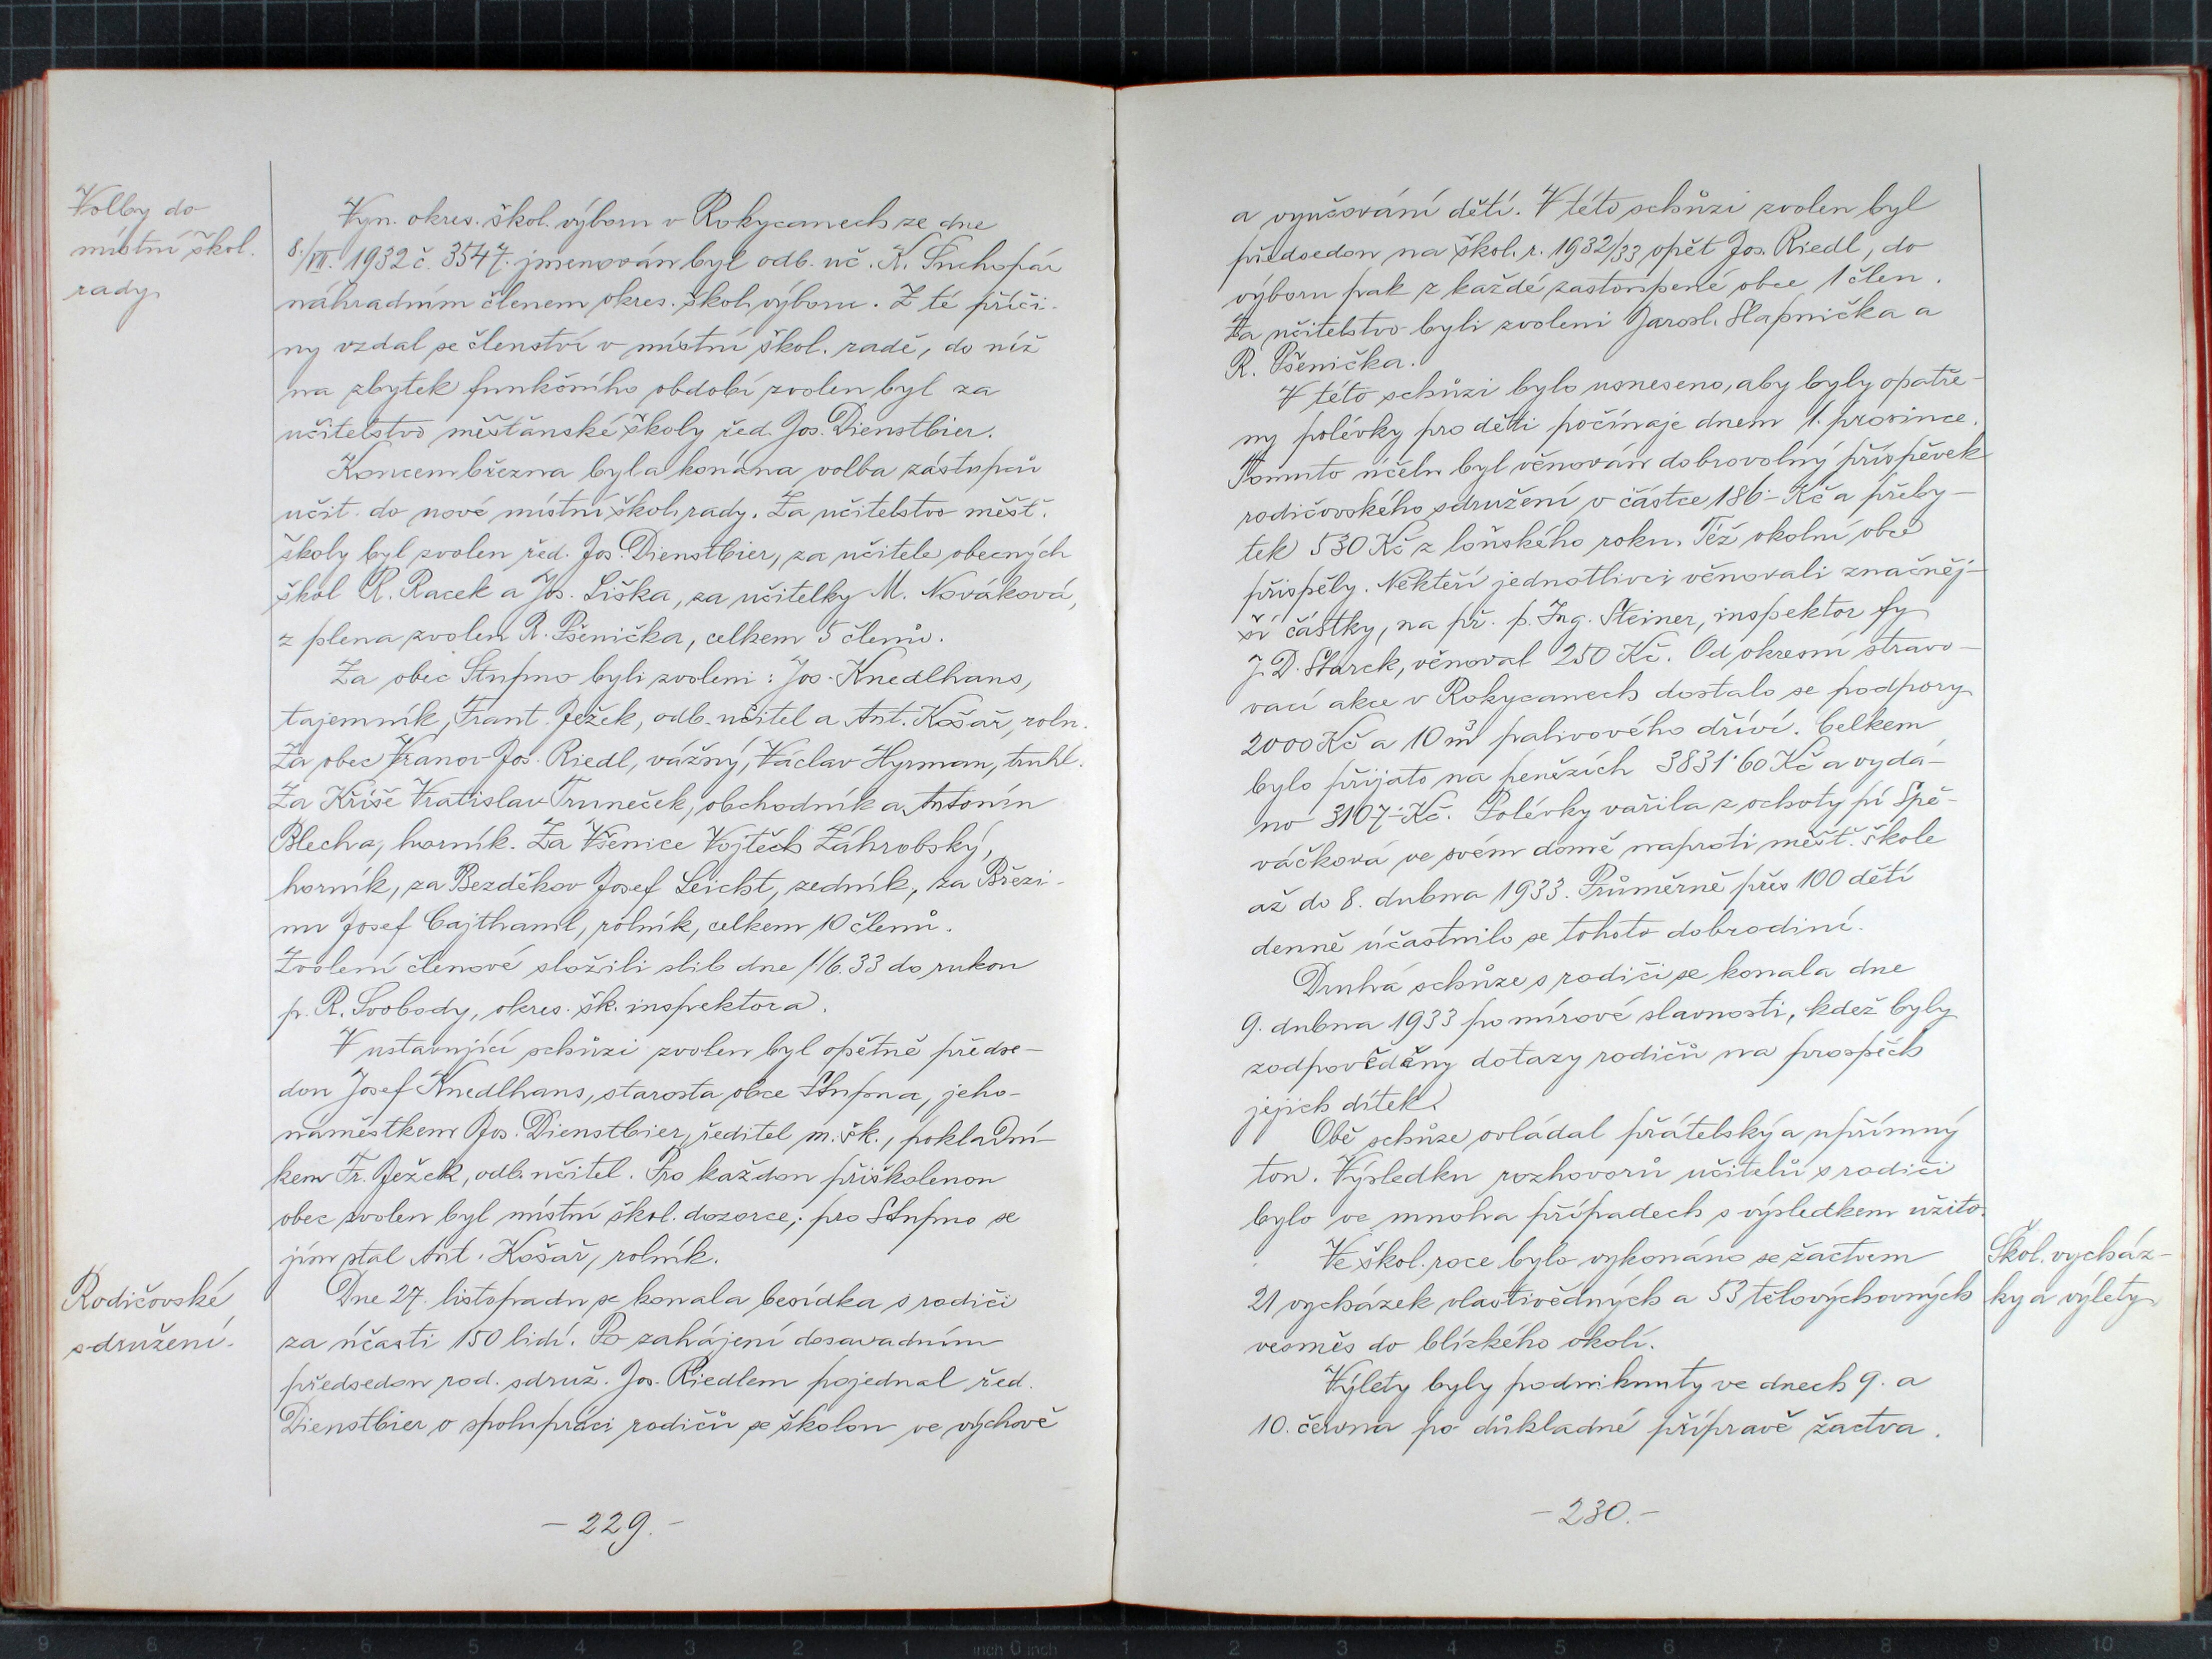 Volby do
místní škol.
rady.
Vyn. okres. škol. výboru v Rokycanech ze dne
8./VII. 1932 č. 3547. jmenován byl odb. uč. K. Suchopár
náhradním členem okres. škol. výboru. Z té příči-
ny vzdal se členství v místní škol. radě, do níž
na zbytek funkčního období zvolen byl za
učitelstvo měšťanské školy řed. Jos. Dienstbier.
Koncem března byla konána volba zástupců
učit. do nové místní škol. rady. Za učitelstvo měšť.
školy byl zvolen řed. Jos. Dienstbier, za učitele obecných
škol R. Racek a Jos. Liška, za učitelky M. Nováková,
z plena zvolen R. Pšenička, celkem 5 členů.
Za obec Stupno byli zvoleni: Jos. Knedlhans,
tajemník, Frant. Ježek, odb. učitel a Ant. Košař, roln.
Za obec Vranov Jos. Riedl, vážný, Václav Hyrman, truhl.
Za Kříše Vratislav Truneček, obchodník a Antonín
Blecha, horník. Za Všenice Vojtěch Záhrobský,
horník, za Bezděkov Josef Leicht, zedník, za Březi-
nu Josef Cajthaml, rolník, celkem 10 členů.
Zvolení členové složili slib dne 1/6.33 do rukou
p. R. Svobody, okres. šk. inspektora.
V ustavující schůzi zvolen byl opětně předse-
dou Josef Knedlhans, starosta obce Stupna, jeho-
náměstkem Jos. Dienstbier, ředitel m. šk., pokladní-
kem Fr. Ježek, odb. učitel. Pro každou přiškolenou
obec zvolen byl místní škol. dozorce; pro Stupno se
jím stal Ant. Košař, rolník.
Rodičovské
sdružení.
Dne 27. listopadu se konala besídka s rodiči
za účasti 150 lidí. Po zahájení dosavadním
předsedou rod. sdruž. Jos. Riedlem pojednal řed.
Dienstbier o spolupráci rodičů se školou ve výchově
- 229. -
a vyučování dětí. V této schůzi zvolen byl
předsedou na škol. r. 1932/33 opět Jos. Riedl, do
výboru pak z každé zastoupené obce 1 člen.
Za učitelstvo byli zvoleni Jarosl. Slapnička a
R. Pšenička.
V této schůzi bylo usneseno, aby byly opatře-
ny polévky pro děti počínaje dnem 1. prosince.
Tomuto účelu byl věnován dobrovolný příspěvek
rodičovského sdružení v částce 186·- Kč a přeby-
tek 530 Kč z loňského roku. Též okolní obce
přispěly. Někteří jednotlivci věnovali značněj-
ší částky, na př. p. Ing. Steiner, inspektor fy
J. D. Starck, věnoval 250 Kč. Od okresní stravo-
vací akce v Rokycanech dostalo se podpory
2000 Kč a 10 m³ palivového dříví. Celkem
bylo přijato na penězích 3831·60 Kč a vydá-
no 3107·- Kč. Polévky vařila z ochoty pí Spě-
váčková ve svém domě naproti měšť. škole
až do 8. dubna 1933. Průměrně přes 100 dětí
denně účastnilo se tohoto dobrodiní.
Druhá schůze s rodiči se konala dne
9. dubna 1933 po mírové slavnosti, kdež byly
zodpověděny dotazy rodičů na prospěch
jejich dítek.
Obě schůze ovládal přátelský a upřímný
ton. Výsledku rozhovorů učitelů s rodiči
bylo ve mnoha případech s výsledkem užito.
Škol. vycház-
ky a výlety
Ve škol. roce bylo vykonáno se žactvem
21 vycházek vlastivědných a 53 tělovýchovných
vesměs do blízkého okolí.
Výlety byly podniknuty ve dnech 9. a
10. června po důkladné přípravě žactva.
- 230. -
9 8 7 6 5 4 3 2 1 inch 0 inch 1 2 3 4 5 6 7 8 9 10